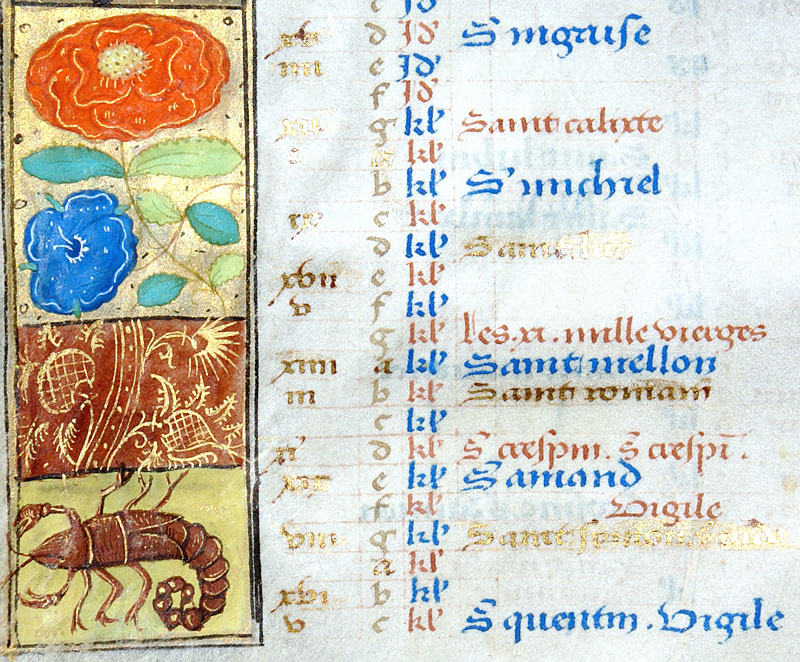 c Id
xv d Id S nigaise
iiii e Id
f Id
xii g kl Saint calixte
i a kl
b kl S michiel
ix c kl
d kl Saint
xvii e kl
v f kl
g kl Les .xi. mille vierges
xiiii a kl Saint mellon
iii b kl Saint romain
c kl
xi d kl S crespin. S crespi.
xix e kl S amand
f kl Vigile
viii g kl Saint simon. iude
a kl
xvi b kl
v c kl S quentin. Vigile